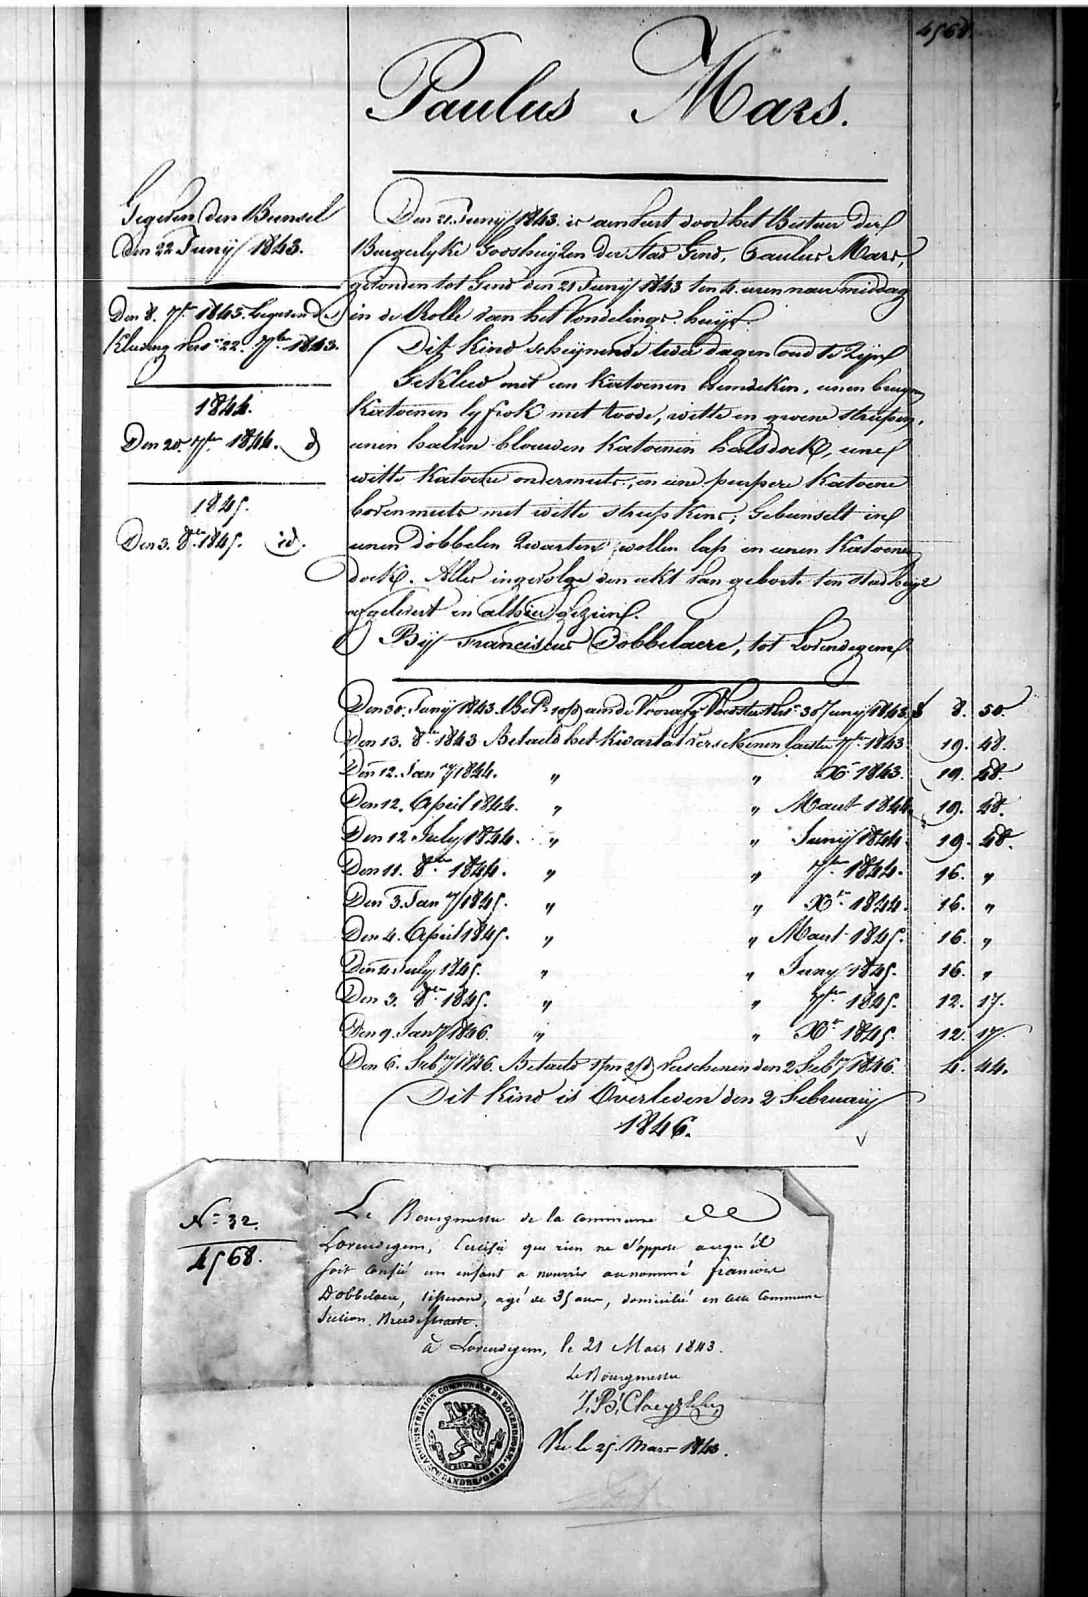 4568.
Paulus Mars.
Gegeven den Bunsel
Den 22 Junij 1843.
Den 8. 7br 1843. Gegeven de
Kleeding vers. 22. 7bre 1843.
1844.
Den 20. 7br 1844. d
1845.
Den 3. 8bre 1845. id.
Den 21. Junij 1843. is aenveert door het Bestuer der
Burgerlyke Godshuyzen der Stad Gend, Paulus Mars,
gevonden tot Gend den 21 Junij 1843 ten 4. uren naermiddag
in de Rolle van het Vondelings-huys.
Dit Kind schynende twee dagen oud te Zyn
Gekleed met een katoenen hemdeken, eenen bruynen
katoenen lyfrok met roode, witte en groene streepen,
eenen halven blauwen katoenen halsdoek, eene
witte katoene ondermuts, en eene purpere katoene
bovenmuts met witte streepkens; Gebunselt in
eenen dobbelen Zwarten wollen lap en eenen katoenen
doek. Alles ingevolge den akt van geboorte ten stadhuyze
opgelevert en alhier gezien.
Bij Franciscus Dobbelaere, tot Lovendegem
Den 30. Junij 1843. 30 Juny 1843. 8. 50.
Den 13. 8bre 1843 Betaeld het kwartael verschenen laeste 7bre 1843. 19. 48.
Den 12. Jany 1844. " " Xbre 1843. 19. 48.
Den 12. April 1844. " " Maert 1844. 19. 48.
Den 12 July 1844. " " Junij 1844. 19. 48.
Den 11. 8bre 1844. " " 7bre 1844. 16. "
Den 3. Jany 1845. " " Xbre 1844. 16. "
Den 4. April 1845. " " Maert 1845. 16. "
Den 4 July 1845. " " Juny 1845. 16. "
Den 3. 8bre 1845. " " 7bre 1845. 12. 17.
Den 9. Jany 1846. " " Xbre 1845. 12. 17.
Den 6. Feby 1846. Betaeld 1 m 2 d verschenen den 2 Feby 1846. 4. 44.
Dit Kind is Overleden den 2 February
1846.
No 32.
4568.
Le Bourgmestre de la commune de
Lovendegem, Certifie que rien ne s'oppose a ce qu'il
soit confié un enfant a nourrir au nommé françois
Dobbelaere, tisserand, agé de 35 ans, domicilié en cette commune
Section Breedestraete.
à Lovendegem, le 21 Mars 1843.
Le Bourgmestre
J. B. Claeys
ADMINISTRATION COMMUNALE DE LOVENDEGEM
FLANDRE ORIE
Vu le 25 Mars 1843.